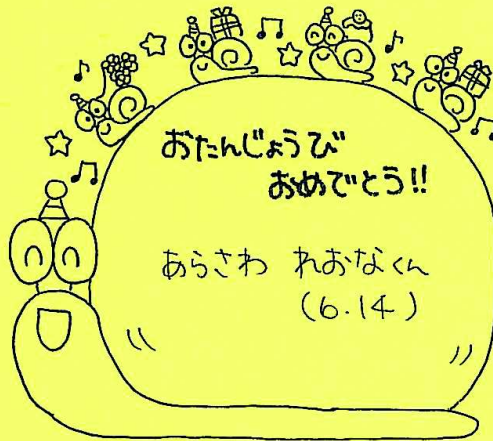 おたんじょうび
おめでとう!!
あらさわ れおなくん
(6.14)